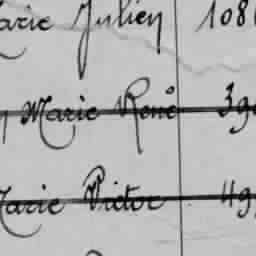 Marie Julien 108
Marie René 39
Marie Victor 49